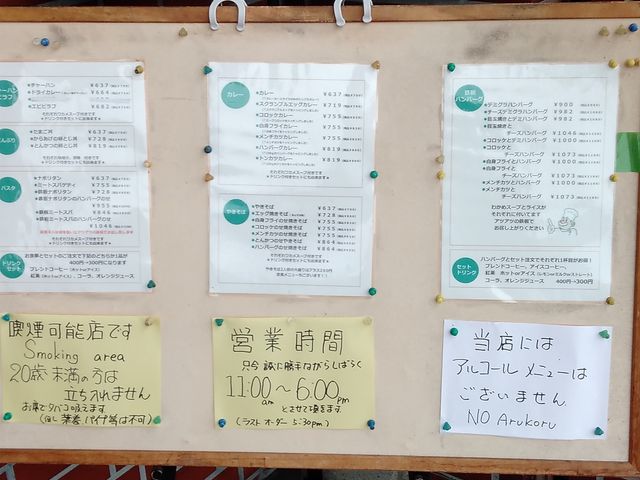 チャーハン ¥637
ドライカレー ¥664
エビピラフ ¥682
たまご丼 ¥637
からあげの卵とじ丼 ¥728
とんかつの卵とじ丼 ¥819
パスタ
ナポリタン ¥637
ミートスパゲティ ¥755
鉄板ナポリタン ¥728
鉄板ナポリタンのハンバーグのせ
¥955
鉄板ミートスパ ¥846
鉄板ミートスパのハンバーグのせ
¥1046
ドリンクセット
お食事とセットのご注文で下記のどちらか1品が
400円→300円になります
ブレンドコーヒー
紅茶 ホットorアイス
コーラ、オレンジジュース
カレー
カレー ¥637
スクランブルエッグカレー ¥719
コロッケカレー ¥755
白身フライカレー ¥755
メンチカツカレー ¥755
ハンバーグカレー ¥819
トンカツカレー ¥819
やきそば
やきそば ¥637
エッグ焼きそば ¥728
白身フライのせ焼きそば ¥755
コロッケのせ焼きそば ¥755
メンチカツのせ焼きそば ¥755
とんかつのせやきそば ¥864
ハンバーグのせ焼きそば ¥864
鉄板ハンバーグ
デミグラハンバーグ ¥900
チーズデミグラハンバーグ ¥982
目玉焼きとデミハンバーグ ¥982
目玉焼きと
チーズハンバーグ ¥1046
コロッケとデミハンバーグ ¥1000
コロッケと
チーズハンバーグ ¥1073
白身フライとハンバーグ ¥1000
白身フライと
チーズハンバーグ ¥1073
メンチカツとハンバーグ ¥1000
メンチカツと
チーズハンバーグ ¥1073
わかめスープとライスが
それぞれに付いてます
アツアツの鉄板で
お召し上がりください
セットドリンク
ハンバーグとセット注文でそれぞれ1杯目がお得！
ブレンドコーヒー、アイスコーヒー、
紅茶 ホットorアイス(レモンorミルクorストレート)
コーラ、オレンジジュース 400円→300円
喫煙可能店です
Smoking area
20歳未満の方は
立ち入れません
お席でタバコ吸えます
(但し 葉巻 パイプ等は不可)
営業時間
只今 誠に勝手ながらしばらく
11:00am〜6:00pm
とさせて頂きます
(ラストオーダー 5:30pm)
当店には
アルコールメニューは
ございません
NO Arukoru